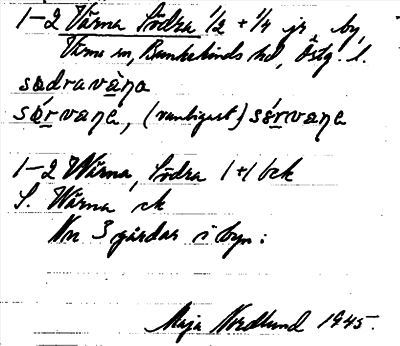 1-2 Värna Södra 1/2 + 1/4 jr by,
Värna sn, Bankekinds hd, Östg. l.
sødravàṇa
sø̀rvaṇe, (vanligast) sǿrvaṇe
1-2 Wärna, Södra 1+1 bck
S. Wärna ck
Nu 3 gårdar i byn:
Maja Nordlund 1945.